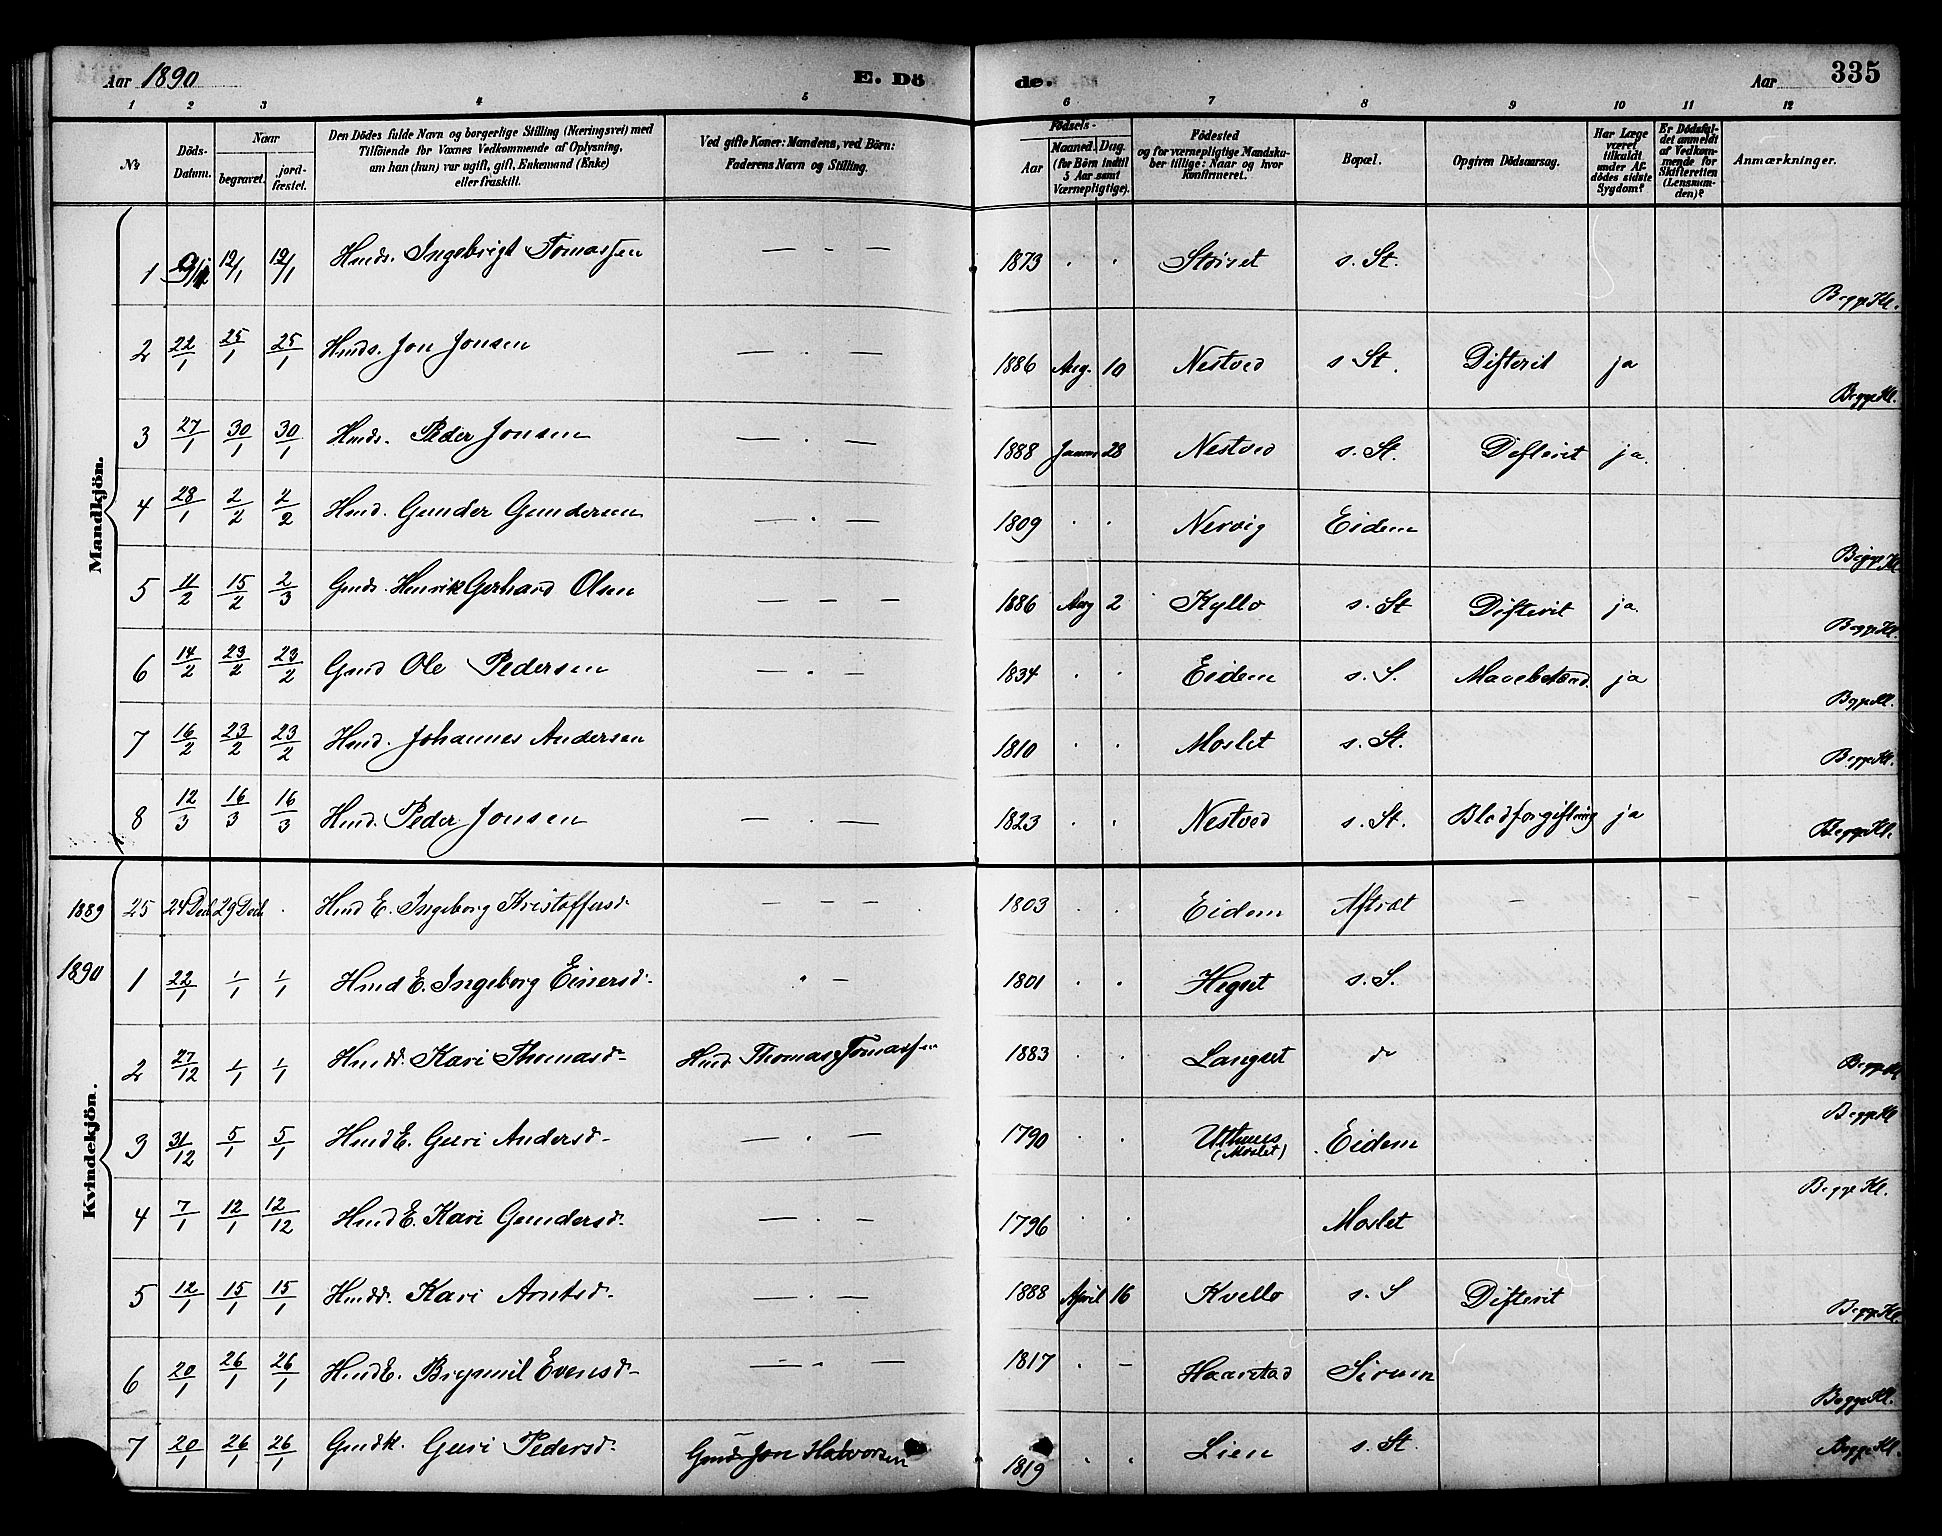 Aar 1890 E. Dö de. Aar 335
1 2 3 4 5 6 7 8 9 10 11 12
№ Döds-Datum. Naar begravet. jordfæstet. Den Dödes fulde Navn og borgerlige Stilling (Næringsvei) med Tilföiende for Voxnes Vedkommende af Oplysning, om han (hun) var ugift, gift, Enkemand (Enke) eller fraskilt. Ved gifte Koner: Mandens, ved Börn: Faderens Navn og Stilling. Födsels- Aar Maaned. Dag. (for Börn indtil 5 Aar samt Værnepligtige). Födested og for værnepligtige Mandskaber tillige: Naar og hvor konfirmeret. Bopæl. Opgiven Dödsaarsag. Har Læge været tilkaldt under Afdödes sidste Sygdom? Er Dödsfaldet anmeldt af Vedkommende for Skifteretten (Lensmanden)? Anmærkninger.
Mandkjön.
1 12/1 12/1 Hmds. Ingebrigt Tomassen — — — 1873 . . Störset s. St. Begge Kl.
2 22/1 25/1 25/1 Hmds. Jon Jonsen — . — 1886 Aug. 10 Nestved s St. Difterit ja Begge Kl.
3 27/1 30/1 30/1 Hmds. Peder Jonsen — . — 1888 Januar 28 Nestved s. St. Difterit ja.
4 28/1 2/2 2/2 Hmd. Gunder Gundersen — . — 1809 . . Nervig Eidem Begge Kl.
5 11/2 15/2 2/3 Gmds. Henrik Gerhard Olsen — — — 1886 Aug 2 Kyllo s. St Difterit ja Begge Kl.
6 14/2 23/2 23/2 Gmd Ole Pedersen — . — 1834 . . Eidem s. S. Mavebetænd. ja Begge Kl.
7 16/2 23/2 23/2 Hmd. Johannes Andersen 1810 . . Moslet s. St. Begge Kl.
8 12/3 16/3 16/3 Hmd. Peder Jonsen — . — 1823 . . Nestved s. St. Blodforgiftning ja Begge Kl.
Kvindekjön.
1889 25 24 Decb. 29 Decb. . Hmd E. Ingeborg Kristoffersd. — — — 1803 . . Eidem Aftræt — —
1890 1 22/1 1/1 1/1 Hmd E. Ingeborg Einersd. . — 1801 . . Hegset s. S.
2 27/12 1/1 1/1 Hmdd. Kari Thomasd. Hmd. Thomas Tomassen 1883 . . Langset do Begge Kl
3 31/12 5/1 5/1 Hmd E. Guri Andersd. — . — 1790 . . Uthuus (Moslet) Eidem Begge Kl
4 7/1 12/1 12/12 Hmd E. Kari Gundersd. — . — 1796 . . Moslet Begge Kl.
5 12/1 15/1 15/1 Hmdd. Kari Arntsd. — . — 1888 April 16 Kvello s. S Difterit Begge Kl
6 20/1 26/1 26/1 Hmd E. Brynnil Evensd. — . — 1817 . — Haarstad Sirum Begge Kl.
7 20/1 26/1 26/1 Gmdk. Guri Pedersd. Gmd Jon Halvorsen 1819 . . Lien s. St. Begge Kl.